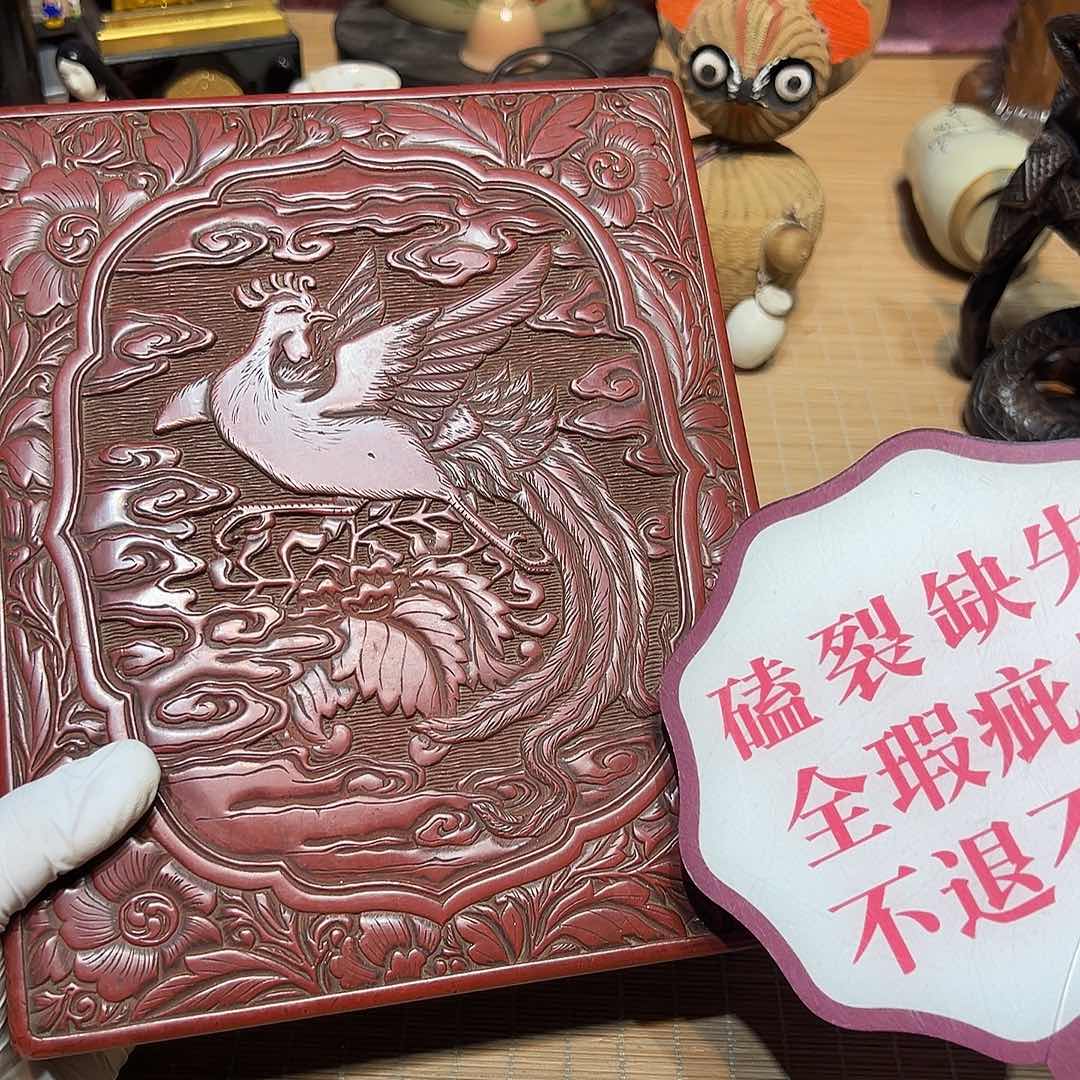 磕裂缺失
全瑕疵
不退不